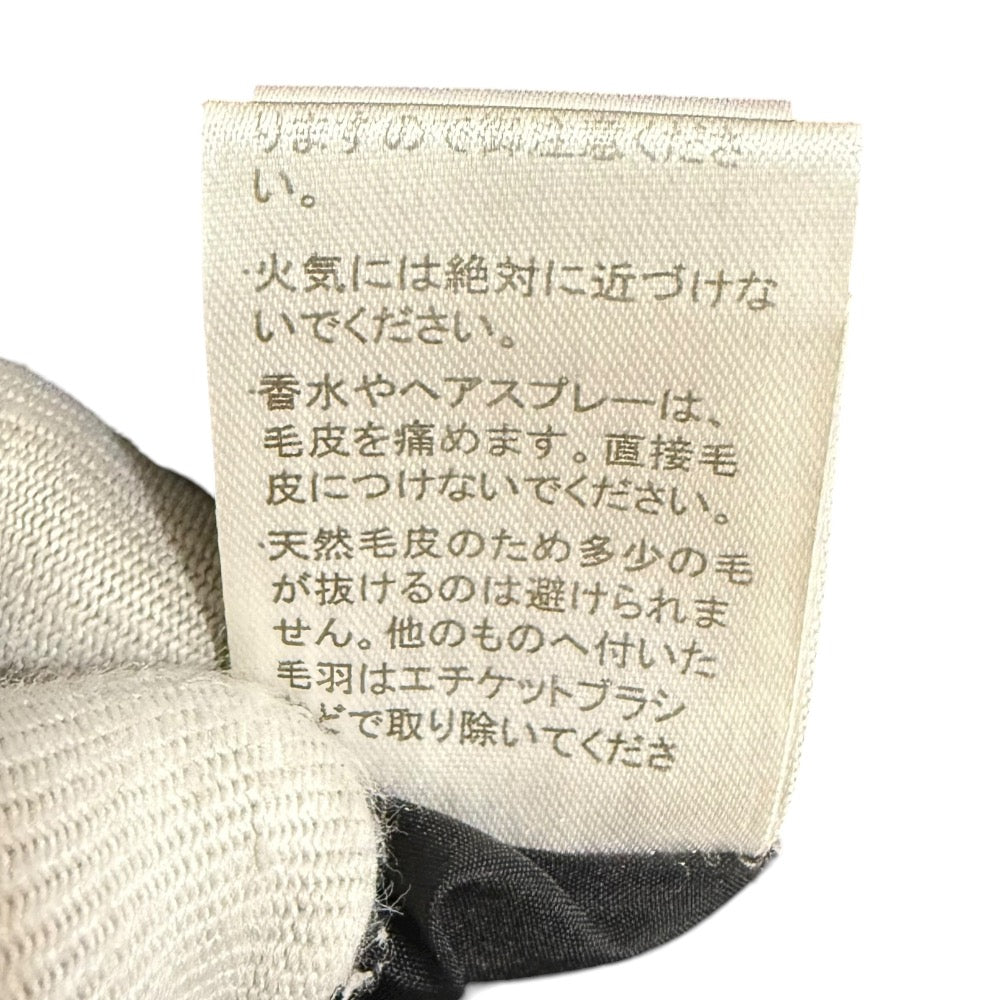 りますので御注意くださ
い。
·火気には絶対に近づけな
いでください。
·香水やヘアスプレーは、
毛皮を痛めます。直接毛
皮につけないでください。
·天然毛皮のため多少の毛
が抜けるのは避けられま
せん。他のものへ付いた
毛羽はエチケットブラシ
どで取り除いてくださ